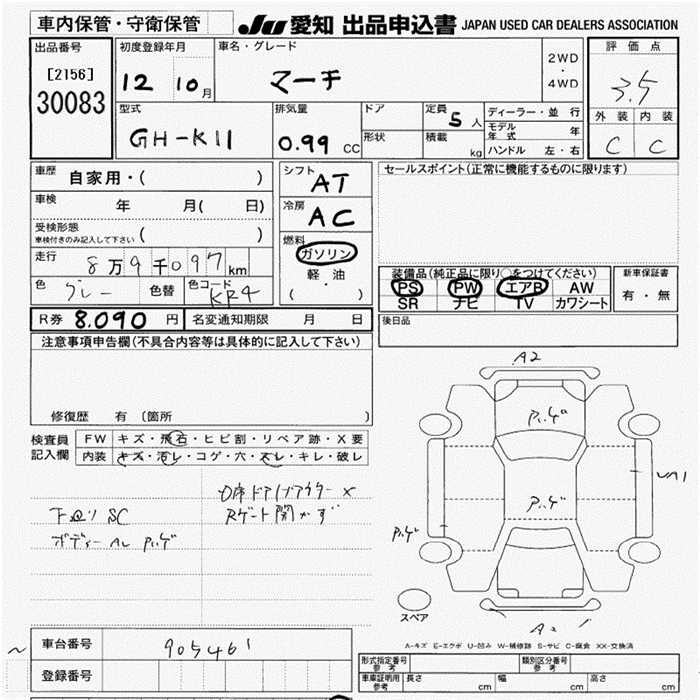 車内保管・守衛保管
JU 愛知 出品申込書 JAPAN USED CAR DEALERS ASSOCIATION
出品番号
[2156]
30083
初度登録年月
12 10月
車名・グレード
マーチ
2WD
・
4WD
評価点
3.5
外装 内装
C C
型式
GH-K11
排気量
0.99 CC
ドア
形状
定員
5人
積載
kg
ディーラー・並行
モデル年式 年
ハンドル 左・右
車歴 自家用・( )
車検 年 月( 日)
受検形態
車検付きのみ記入して下さい ( )
走行 8万9千097km
色 グレー 色替 色コード KR4
シフト AT
冷房 AC
燃料
ガソリン
軽・油
( ・ )
セールスポイント(正常に機能するものに限ります)
装備品(純正品に限り○をつけてください)
PS PW エアB AW
SR ナビ TV カワシート
新車保証書
有・無
R券 8.090 円 名変通知期限 月 日
後日品
注意事項申告欄(不具合内容等は具体的に記入して下さい)
修復歴 有(箇所 )
検査員
記入欄
FW キズ・飛石・ヒビ割・リペア跡・X要
内装 キズ・汚レ・コゲ・穴・スレ・キレ・破レ
下回り SC
A2
UA1
スペア
A-キズ E-エクボ U-凹み W-補修跡 S-サビ C-腐食 XX-交換済
車台番号 905461
登録番号
形式指定番号
参考
類別区分番号
参考
車庫証明用
参考
長さ cm 幅 cm 高さ cm